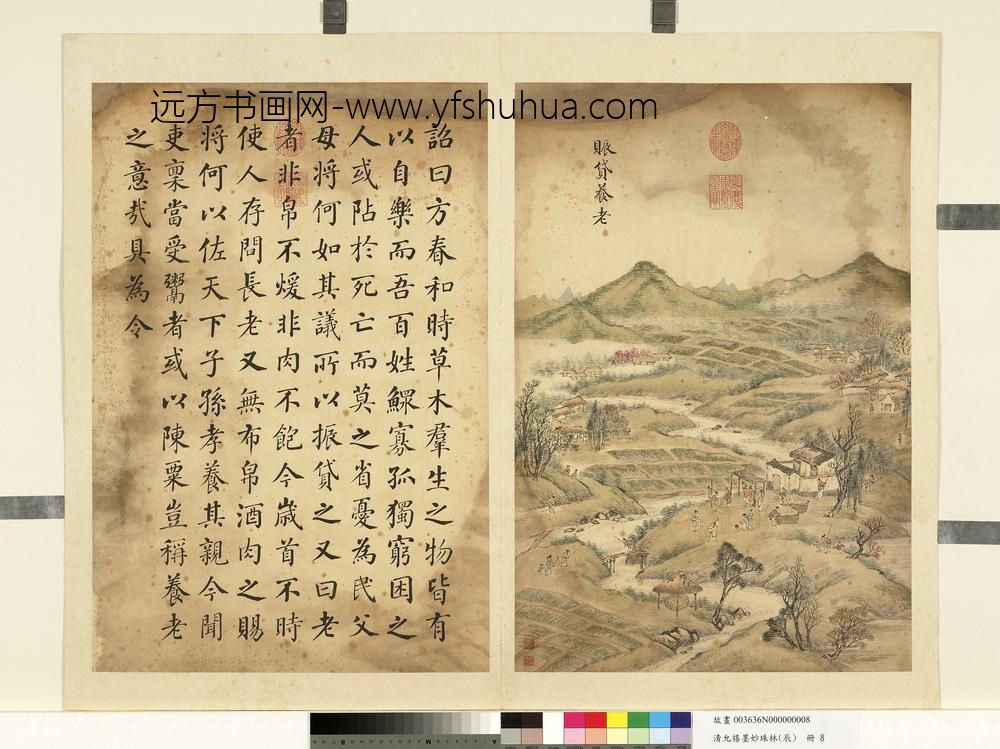 远方书画网-www.yfshuhua.com
賑貸養老
詔曰方春和時草木羣生之物皆有
以自樂而吾百姓鰥寡孤獨窮困之
人或阽於死亡而莫之省憂為民父
母將何如其議所以振貸之又曰老
者非帛不煖非肉不飽今歲首不時
使人存問長老又無布帛酒肉之賜
將何以佐天下子孫孝養其親今聞
吏稟當受鬻者或以陳粟豈稱養老
之意哉具為令
故畫 003636N000000008
清允禧墨妙珠林(辰) 冊 8